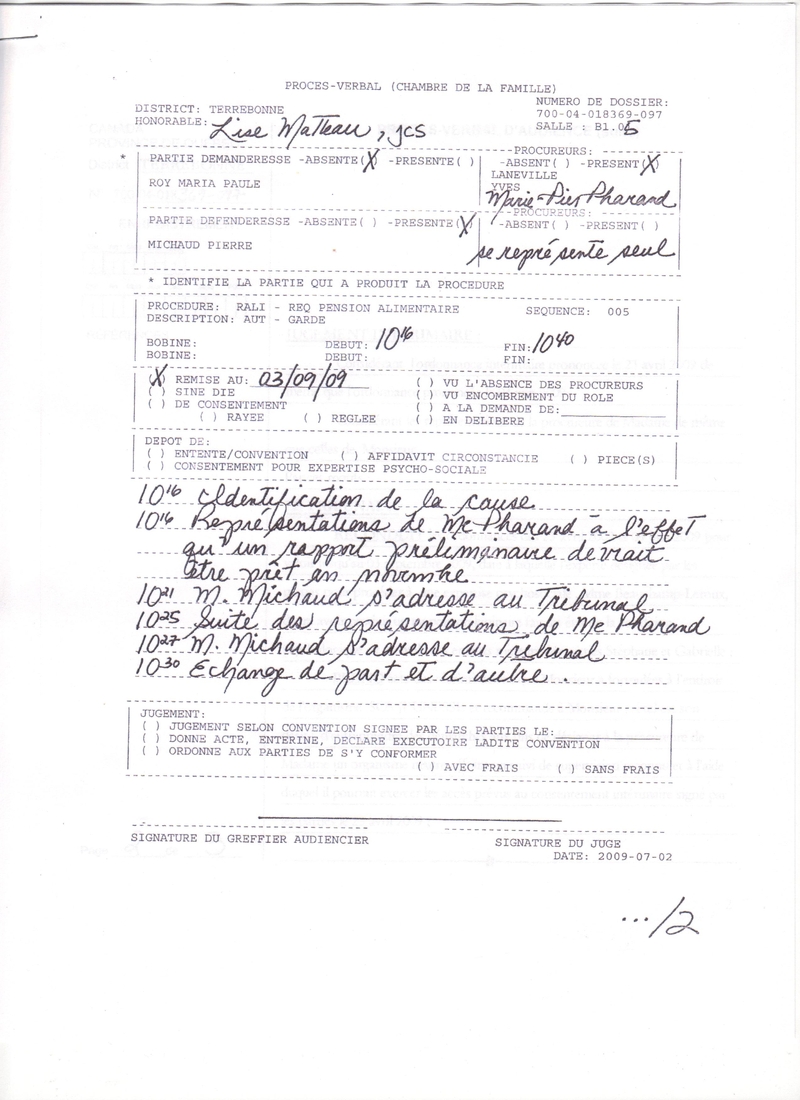 PROCES-VERBAL (CHAMBRE DE LA FAMILLE)
DISTRICT: TERREBONNE
NUMERO DE DOSSIER:
700-04-018369-097
HONORABLE: Lise Matteau, jcs
SALLE : B1.05
* PARTIE DEMANDERESSE -ABSENTE(X) -PRESENTE( )
ROY MARIA PAULE
PROCUREURS:
-ABSENT( ) -PRESENT(X)
LANEVILLE
YVES
Marie-Pier Pharand
PARTIE DEFENDERESSE -ABSENTE( ) -PRESENTE(X)
MICHAUD PIERRE
PROCUREURS:
-ABSENT( ) -PRESENT( )
se représente seul
* IDENTIFIE LA PARTIE QUI A PRODUIT LA PROCEDURE
PROCEDURE: RALI - REQ PENSION ALIMENTAIRE SEQUENCE: 005
DESCRIPTION: AUT - GARDE
BOBINE: DEBUT: 10 16 FIN: 10 40
BOBINE: DEBUT: FIN:
(X) REMISE AU: 03/09/09 ( ) VU L'ABSENCE DES PROCUREURS
( ) SINE DIE ( ) VU ENCOMBREMENT DU ROLE
( ) DE CONSENTEMENT ( ) A LA DEMANDE DE:
( ) RAYEE ( ) REGLEE ( ) EN DELIBERE
DEPOT DE:
( ) ENTENTE/CONVENTION ( ) AFFIDAVIT CIRCONSTANCIE ( ) PIECE(S)
( ) CONSENTEMENT POUR EXPERTISE PSYCHO-SOCIALE
10 16 Identification de la cause
10 16 Représentations de Me Pharand à l'effet
qu'un rapport préliminaire devrait
être prêt en novembre
10 21 M. Michaud s'adresse au Tribunal
10 25 Suite des représentations de Me Pharand
10 27 M. Michaud s'adresse au Tribunal
10 30 Echange de part et d'autre.
JUGEMENT:
( ) JUGEMENT SELON CONVENTION SIGNEE PAR LES PARTIES LE:
( ) DONNE ACTE, ENTERINE, DECLARE EXECUTOIRE LADITE CONVENTION
( ) ORDONNE AUX PARTIES DE S'Y CONFORMER
( ) AVEC FRAIS ( ) SANS FRAIS
SIGNATURE DU GREFFIER AUDIENCIER
SIGNATURE DU JUGE
DATE: 2009-07-02
.../2